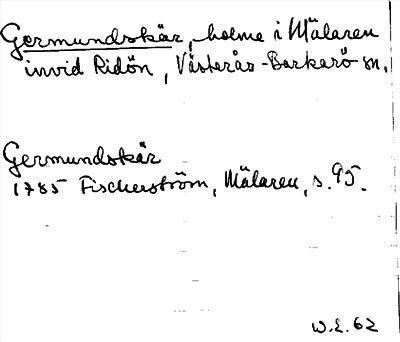 Germundskär, holme i Mälaren
invid Ridön, Västerås-Barkarö sn.
Germundskär
1785 Fischerström, Mälaren, s. 95.
W.E. 62